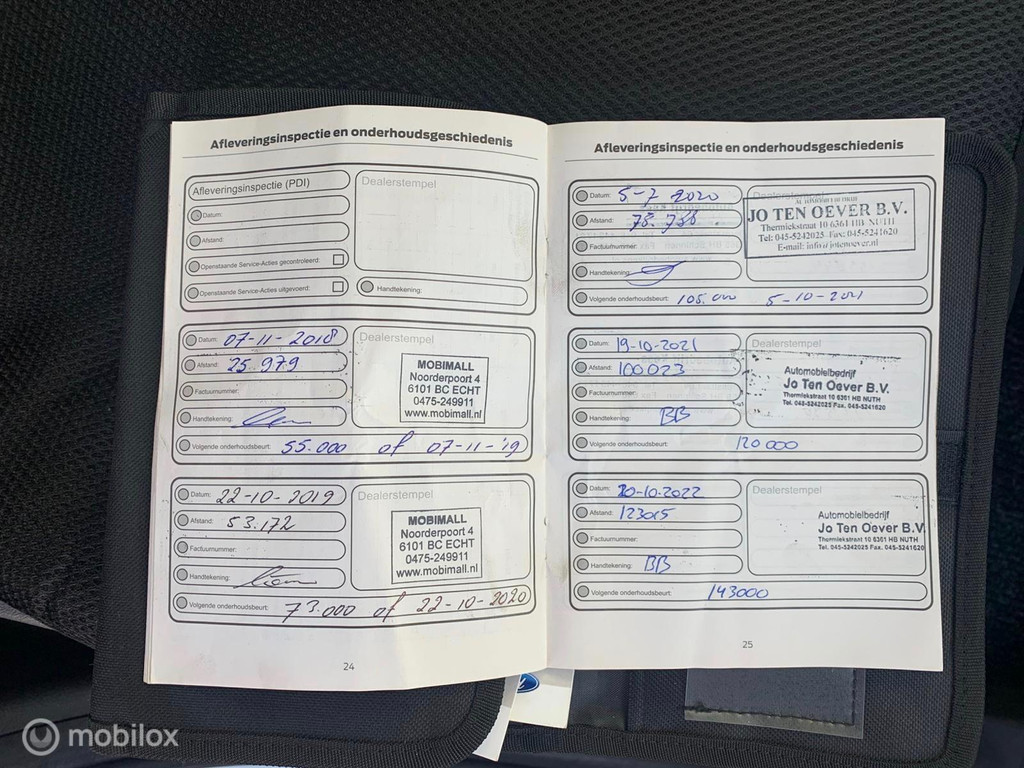 Afleveringsinspectie en onderhoudsgeschiedenis
Afleveringsinspectie (PDI)
Datum:
Afstand:
Openstaande Service-Acties gecontroleerd:
Openstaande Service-Acties uitgevoerd:
Dealerstempel
Handtekening:
Datum: 07-11-2018
Afstand: 25.979
Factuurnummer:
Handtekening:
Dealerstempel
MOBIMALL
Noorderpoort 4
6101 BC ECHT
0475-249911
www.mobimall.nl
Volgende onderhoudsbeurt: 55.000 of 07-11-'19
Datum: 22-10-2019
Afstand: 53.172
Factuurnummer:
Handtekening:
Dealerstempel
MOBIMALL
Noorderpoort 4
6101 BC ECHT
0475-249911
www.mobimall.nl
Volgende onderhoudsbeurt: 73.000 of 22-10-2020
24
Afleveringsinspectie en onderhoudsgeschiedenis
Datum: 5-7 2020
Afstand: 78.788
Factuurnummer:
Handtekening:
Dealerstempel
JO TEN OEVER B.V.
Thermiekstraat 10 6361 HB NUTH
Tel: 045-5242025 Fax: 045-5241620
E-mail: info@jotenoever.nl
Volgende onderhoudsbeurt: 105.000 5-10-2021
Datum: 19-10-2021
Afstand: 100023
Factuurnummer:
Handtekening: BB
Dealerstempel
Automobielbedrijf
Jo Ten Oever B.V.
Thermiekstraat 10 6361 HB NUTH
Tel. 045-5242025 Fax. 045-5241620
Volgende onderhoudsbeurt: 120000
Datum: 20-10-2022
Afstand: 123015
Factuurnummer:
Handtekening: BB
Dealerstempel
Automobielbedrijf
Jo Ten Oever B.V.
Thermiekstraat 10 6361 HB NUTH
Tel. 045-5242025 Fax. 045-5241620
Volgende onderhoudsbeurt: 143000
25
mobilox